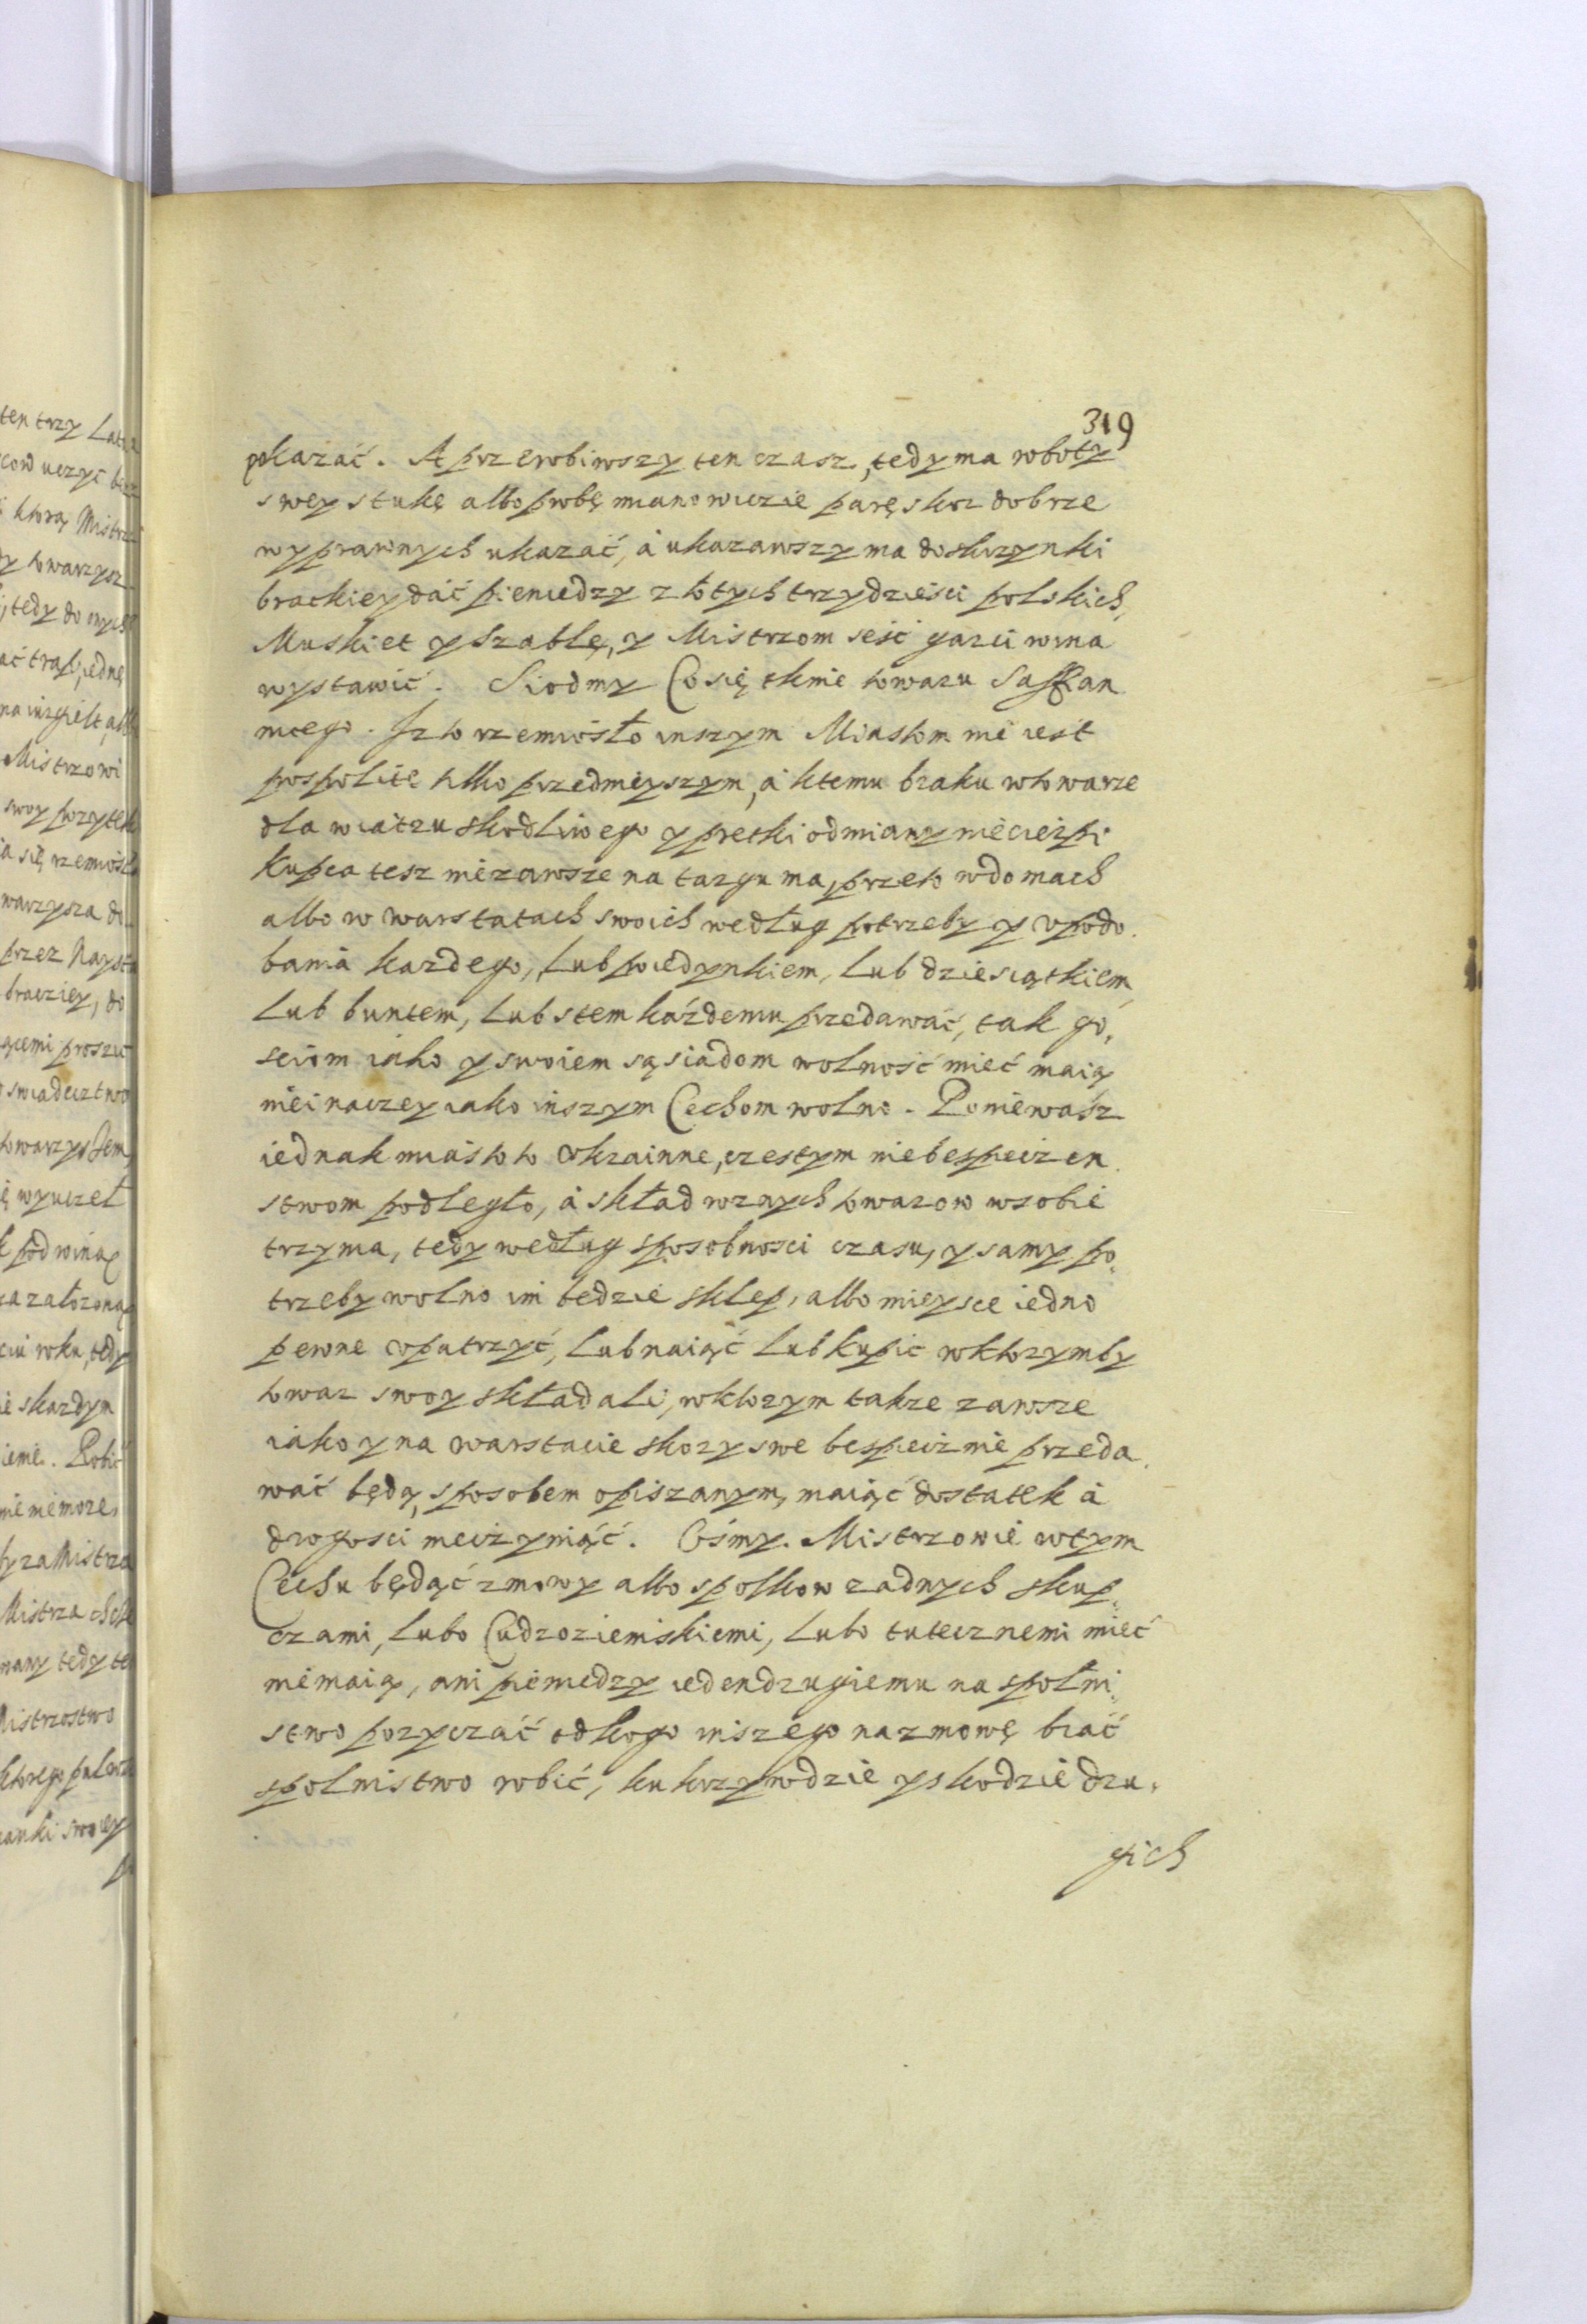 319
pokazać. A przerobiwszy ten czasz, tedy ma roboty
swey stukę albo probę mianowicie parę skor dobrze
wyprawnych ukazać, á ukazawszy ma do skrzynki
brackiey dać pieniedzy złotych trzydziesci polskich,
Muskiet y Szablę, y Mistrzom seść garci wina
wystawić. Siodmy Co się tknie towaru Saffian
niczego. Jz to rzemiosło inszym Miastom nie iest
pospolite tilko przednieyszym, á ktemu braku w towarze
dla wiatru skodliwego y pretki odmiany niecierpi
Kupca tesz niezawsze na targu ma, przeto w domach
albo w warstatach swoich według potrzeby y upodo
bania kazdego, Lub poiedynkiem, Lub dziesiątkiem,
Lub buntem, Lub stem każdemu przedawać, tak go,
sciom iako y swoiem sąsiadom wolność mieć maią
nieinaczey iako inszym Cechom wolno. Poniewasz
iednak miasto to Vkrainne, czestym niebespieczen
stwom podległo, á skład roznych towarow w sobie
trzyma, tedy według sposobnosci czasu, y samy po,
trzeby wolno im bedzie sklep, albo mieysce iedno
pewne upatrzyć, Lub naiąć Lub kupic w ktorymby
towar swoy składali, w ktorym takze zawsze
iako y na warstacie skory swe bespiecznie przeda
wać będą, sposobem opiszanym, maiąć dostatek á
drogosci nieczyniąć. Osmy. Mistrzowie w tym
Cechu będąć zmowy albo społkow zadnych s kup,
czami, Lubo Cudzoziemskiemi, Lubo tutecznemi mieć
niemaią, ani pieniedzy ieden drugiemu na społni,
stwo pozyczać od kogo inszego na zmowę brać
spolnistwo robić, ku krzywdzie y skodzie dru,
gich